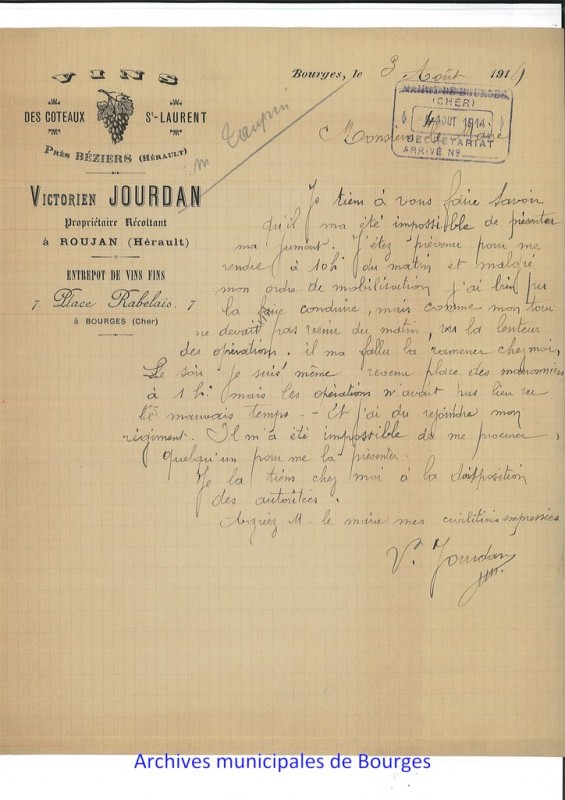 VINS
DES COTEAUX St-LAURENT
PRÈS BÉZIERS (HÉRAULT)
VICTORIEN JOURDAN
Propriétaire Récoltant
à ROUJAN (Hérault)
ENTREPOT DE VINS FINS
7, Place Rabelais, 7
à BOURGES (Cher)
Bourges, le 3 Août 1914
MAIRIE DE BOURGES
(CHER)
4 AOUT 1914
SECRÉTARIAT
ARRIVÉ No
Monsieur le Maire
Je tiens à vous faire savoir
qu'il ma été impossible de présenter
ma jument. J'étez prévenu pour me
rendre à 10h du matin et malgré
mon ordre de mobilisation j'ai bien pu
la faire conduire, mais comme mon tour
ne devait pas venir du matin, vu la lenteur
des opérations. il ma fallu la ramener chez moi,
Le soir je suis même revenu place des marronniers
à 1 h. mais les opérations n'avait pas lieu vu
le mauvais temps - Et j'ai du rejoindre mon
régiment. Il m'a été impossible de me procurer
quelqu'un pour me la présenter.
Je la tiens chez moi à la disposition
des autoritées.
Agréez M. le maire mes civilitées empressées
V. Jourdan
Archives municipales de Bourges